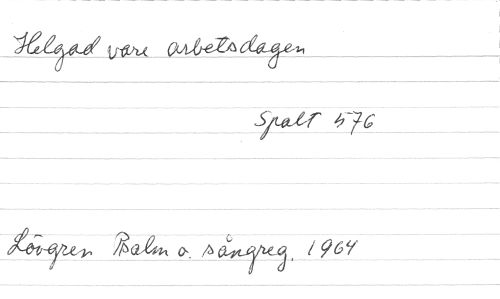 Helgad vare arbetsdagen
Spalt 576
Lövgren Psalm o. sångreg. 1964